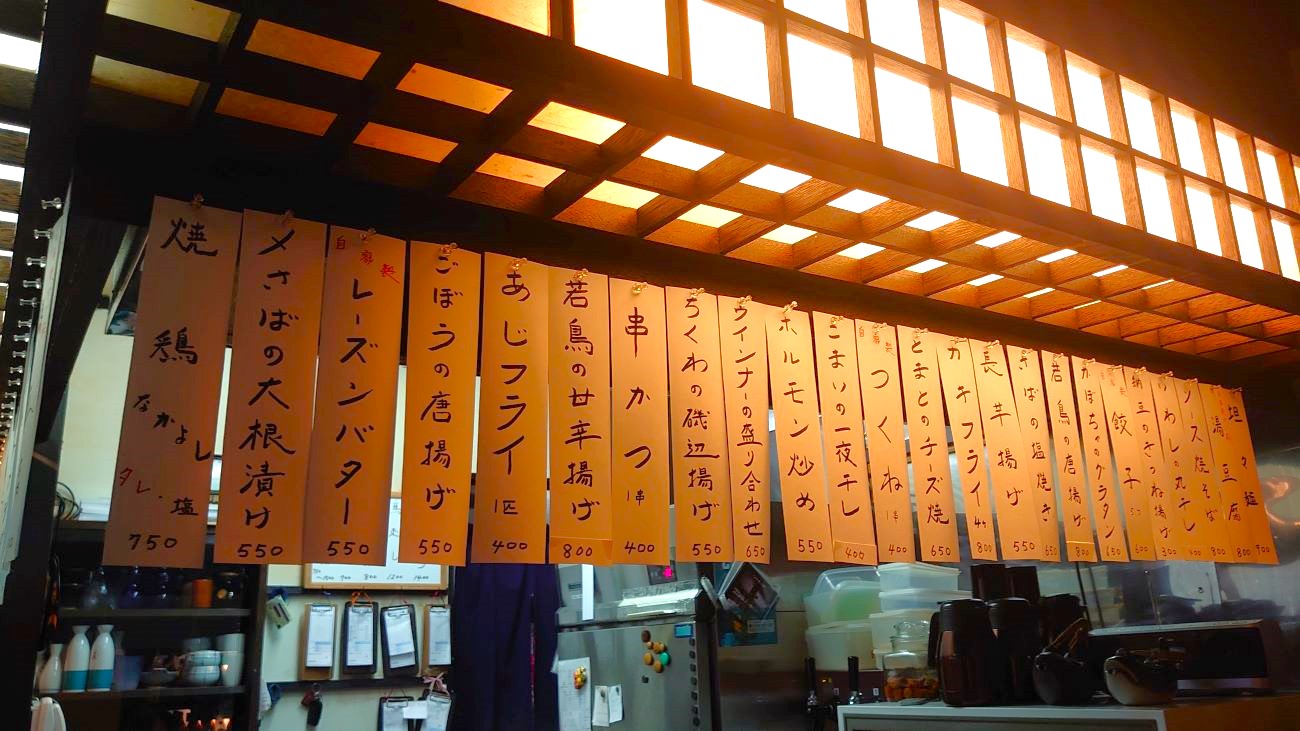 焼鶏なかよし
タレ・塩
750
〆さばの大根漬け
550
自家製
レーズンバター
550
ごぼうの唐揚げ
550
あじフライ
1匹
400
若鳥の甘辛揚げ
800
串かつ
1串
400
ちくわの磯辺揚げ
550
ウインナーの盛り合わせ
650
ホルモン炒め
550
こまいの一夜干し
400
自家製
つくね
1串
400
とまとのチーズ焼
650
カキフライ
4ケ
800
長芋揚げ
550
さばの塩焼き
650
若鳥の唐揚げ
800
かぼちゃのグラタン
650
餃子
600
納豆のきつね揚げ
300
いわしの丸干し
400
ソース焼そば
800
湯豆腐
800
坦々麺
900